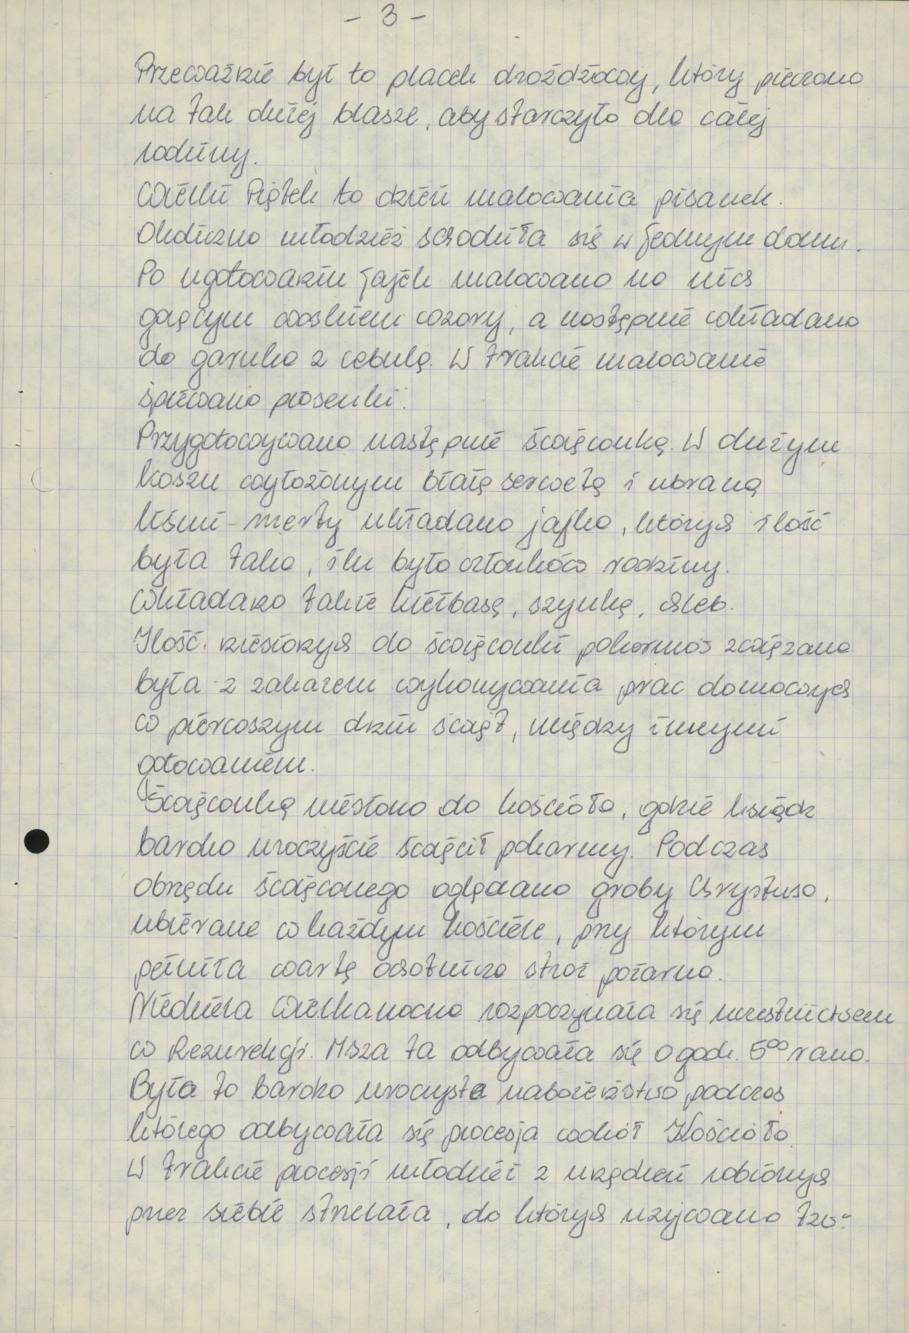 - 3 -
Przeważnie był to placek drożdżowy, który pieczono
na tak dużej blasze, aby starczyło dla całej
rodziny.
Wielki Piątek to dzień malowania pisanek.
Okoliczna młodzież schodziła się w jednym domu.
Po ugotowaniu jajek malowano na nich
gorącym woskiem wzory, a następnie wkładano
do garnka z cebulą. W trakcie malowania
śpiewano piosenki.
Przygotowywano następnie święconkę. W dużym
koszu wyłożonym białą serwetą i ubraną
liśmi mirty układano jajka, których ilość
była taka, ilu było członków rodziny.
Wkładano także kiełbasę, szynkę, chleb.
Ilość niesionych do święconki pokarmów związana
była z zakazem wykonywania prac domowych
w pierwszym dniu świąt, między innymi
gotowaniem.
Święconkę niesiono do kościoła, gdzie ksiądz
bardzo uroczyście święcił pokarmy. Podczas
obrzędu święconego oglądano groby Chrystusa,
ubierane w każdym kościele, przy którym
pełniła wartę ochotnicza straż pożarna.
Niedziela Wielkanocna rozpoczynała się uczestnictwem
w Rezurekcji. Msza ta odbywała się o godz. 5⁰⁰ rano.
Była to bardzo uroczysta nabożeństwo podczas
którego odbywała się procesja wokół Kościoła.
W trakcie procesji młodzież z urządzeń robionych
przez siebie strzelała, do których używano tzw.